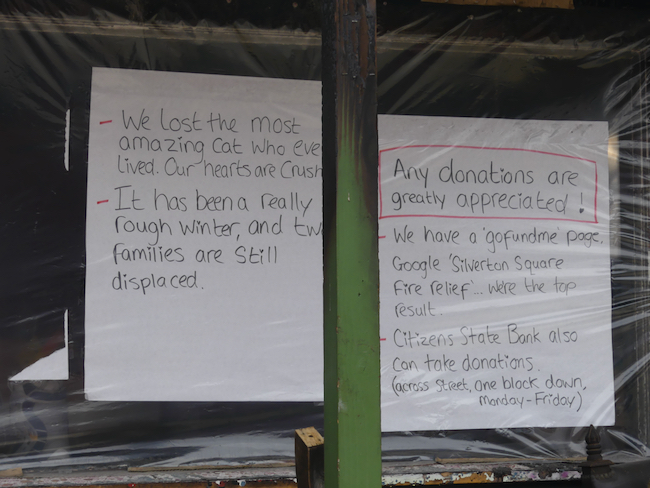 - We lost the most
amazing cat who eve
lived. Our hearts are Crush
- It has been a really
rough winter, and tw
families are still
displaced.
Any donations are
greatly appreciated!
- We have a 'gofundme' page.
Google 'Silverton Square
Fire relief'... were the top
result.
- Citizens State Bank also
can take donations.
(across street, one block down,
Monday-Friday)